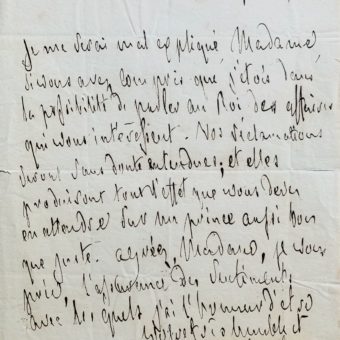 Je me serai mal expliqué Madame
si vous avez compris que j'étois dans
la possibilité de parler au Roi des affaires
qui vous intéressent. Vos réclamations
seront sans doute entendues; et elles
produiront tout l'effet que vous devez
en attendre sur un prince aussi bon
que juste. agréez, Madame, je vous
prie, l'assurance des sentimens
avec lesquels j'ai l'honneur d'être
votre très humble et